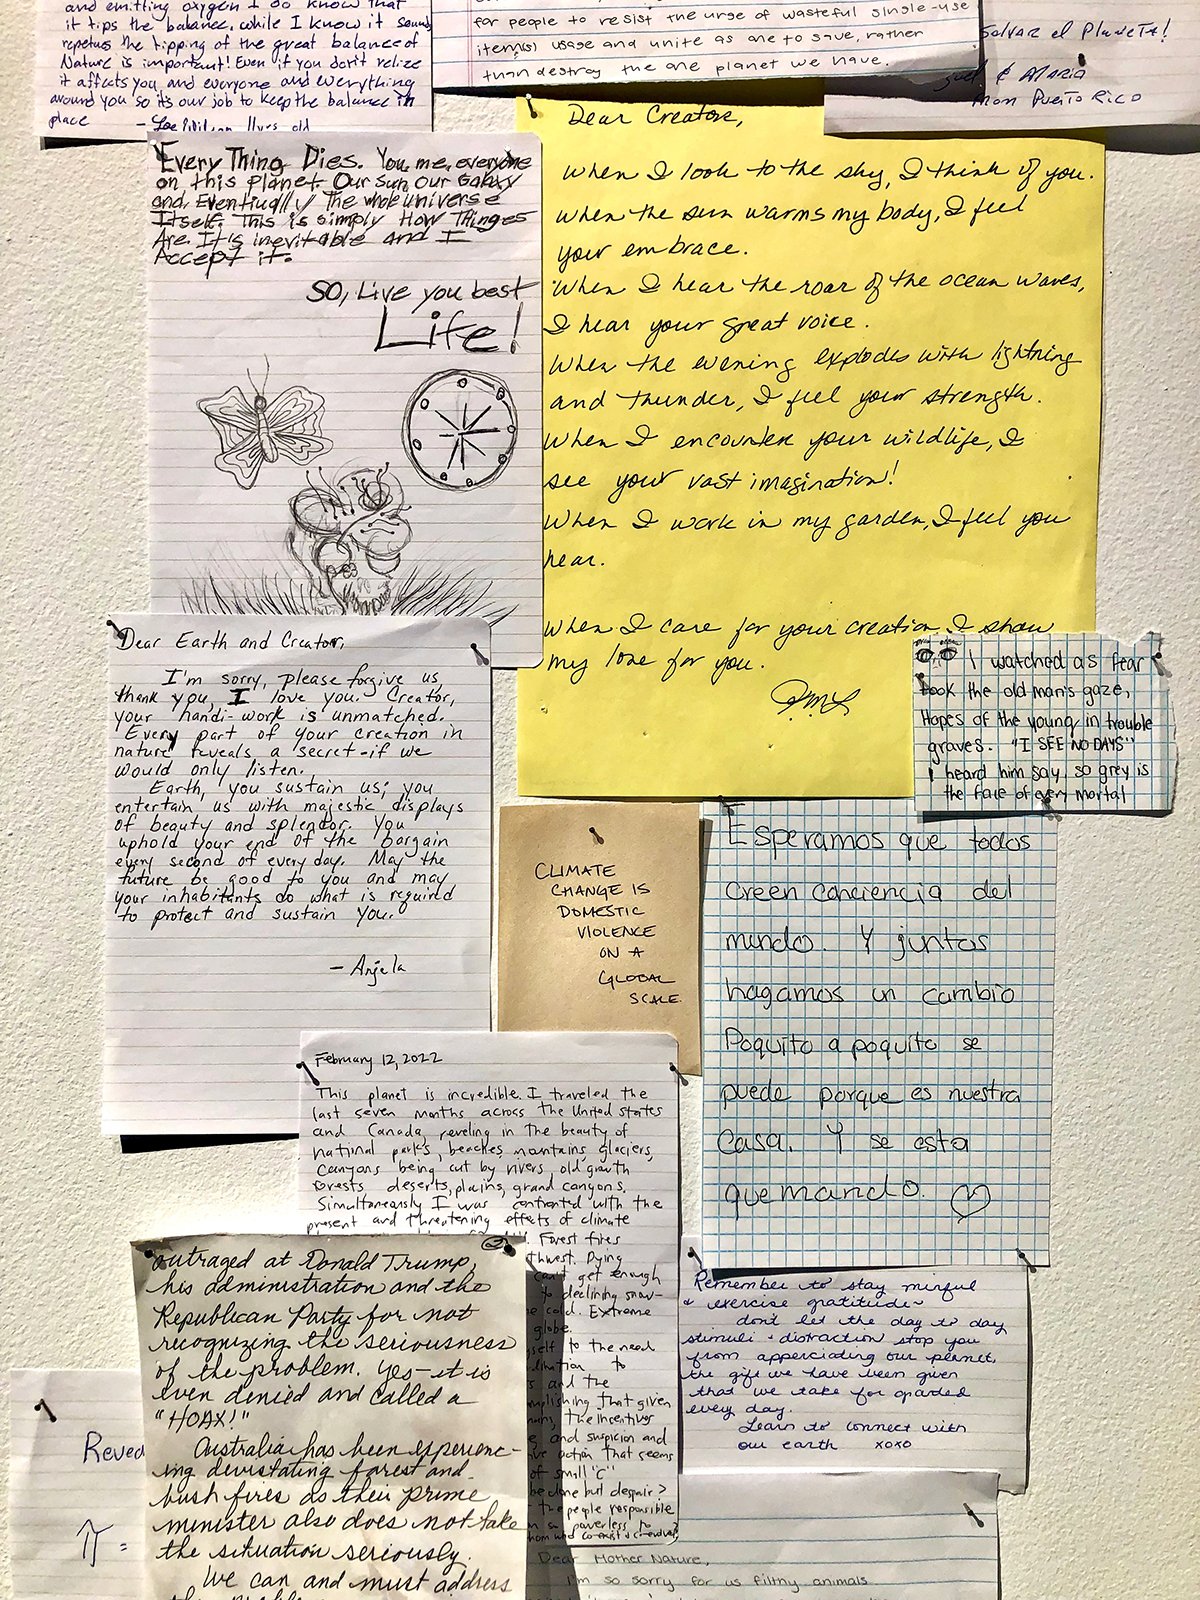 and emitting oxygen I do know that
it tips the balance. while I know it sounds
repetus the tipping of the great balance of
Nature is important! Even if you don't relize
it affects you and everyone and everything
around you so it's our job to keep the balance in
place
11yrs old
for people to resist the urge of wasteful single-use
item(s) usage and unite as one to save, rather
than destroy the one planet we have.
Salvar el Planeta!
& Maria
From Puerto Rico
Every Thing Dies. You, me, everyone
on this planet. Our Sun, Our Galaxy
and, Eventiually the whole universe
Itself. This is simply How Thinges
Are. It's inevitable and I
Accept it.
SO, Live you best
Life!
Dear Creator,
When I look to the sky, I think of you.
When the sun warms my body, I feel
your embrace.
When I hear the roar of the ocean waves,
I hear your great voice.
When the evening explodes with lightning
and thunder, I feel your strength.
When I encounter your wildlife, I
see your vast imagination!
When I work in my garden, I feel you
near.
When I care for your creation, I show
my love for you.
Dear Earth and Creator,
I'm sorry, please forgive us
thank you, I love you. Creator,
your handi-work is unmatched.
Every part of your creation in
nature reveals a secret-if we
would only listen.
Earth, you sustain us; you
entertain us with majestic displays
of beauty and splendor. You
uphold your end of the bargain
every second of every day. May the
future be good to you and may
your inhabitants do what is required
to protect and sustain you.
- Anjela
I watched as fear
took the old man's gaze,
Hopes of the young in trouble
graves. "I SEE NO DAYS"
I heard him say, so grey is
the face of every mortal
CLIMATE
CHANGE IS
DOMESTIC
VIOLENCE
ON A
GLOBAL
SCALE.
Esperamos que todos
creen conciencia del
mundo. Y juntos
hagamos un cambio
Poquito a poquito se
puede porque es nuestra
Casa. Y se esta
quemando.
February 12, 2022
This planet is incredible. I traveled the
last seven months across the United States
and Canada, reveling in the beauty of
national parks, beaches, mountains, glaciers,
canyons being cut by rivers, old growth
forests, deserts, plains, grand canyons.
Simultaneously I was confronted with the
present and threatening effects of climate
Forest fires
thwest. Dying
can't get enough
to declining snow-
cold. Extreme
globe.
self to the need
dination to
and the
mplishing that given
the incentives
and suspicion and
ve action that seems
of small "c"
be done but despair?
the people responsible
so powerless to
outraged at Donald Trump,
his administration and the
Republican Party for not
recognizing the seriousness
of the problem. Yes-it is
even denied and called a
"HOAX!"
Australia has been experienc-
ing devistating forest and
bush fires as their prime
minister also does not take
the situation seriously.
We can and must address
Remember to stay minful
+ exercise gratitude~
don't let the day to day
stimuli + distraction stop you
from apperciating our planet,
the gift we have been given
that we take for granted
every day.
Learn to connect with
our earth xoxo
Reved
Dear Mother Nature,
I'm so sorry for us filthy animals